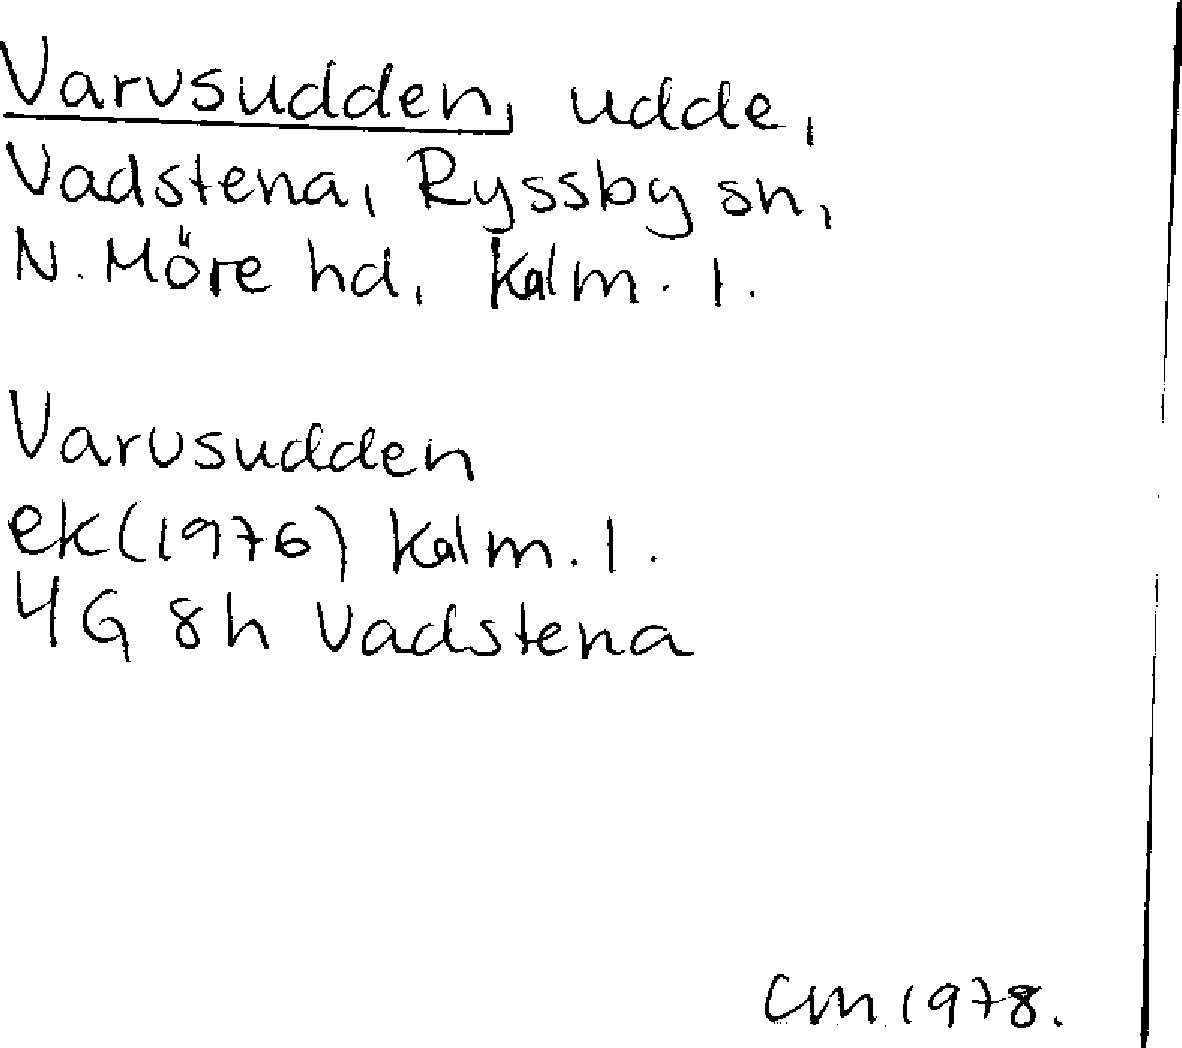 Varvsudden, udde,
Vadstena, Ryssby sn,
N. Möre hd, Kalm. l.
Varvsudden
ek(1976) Kalm. l.
4G 8h Vadstena
CM 1978.